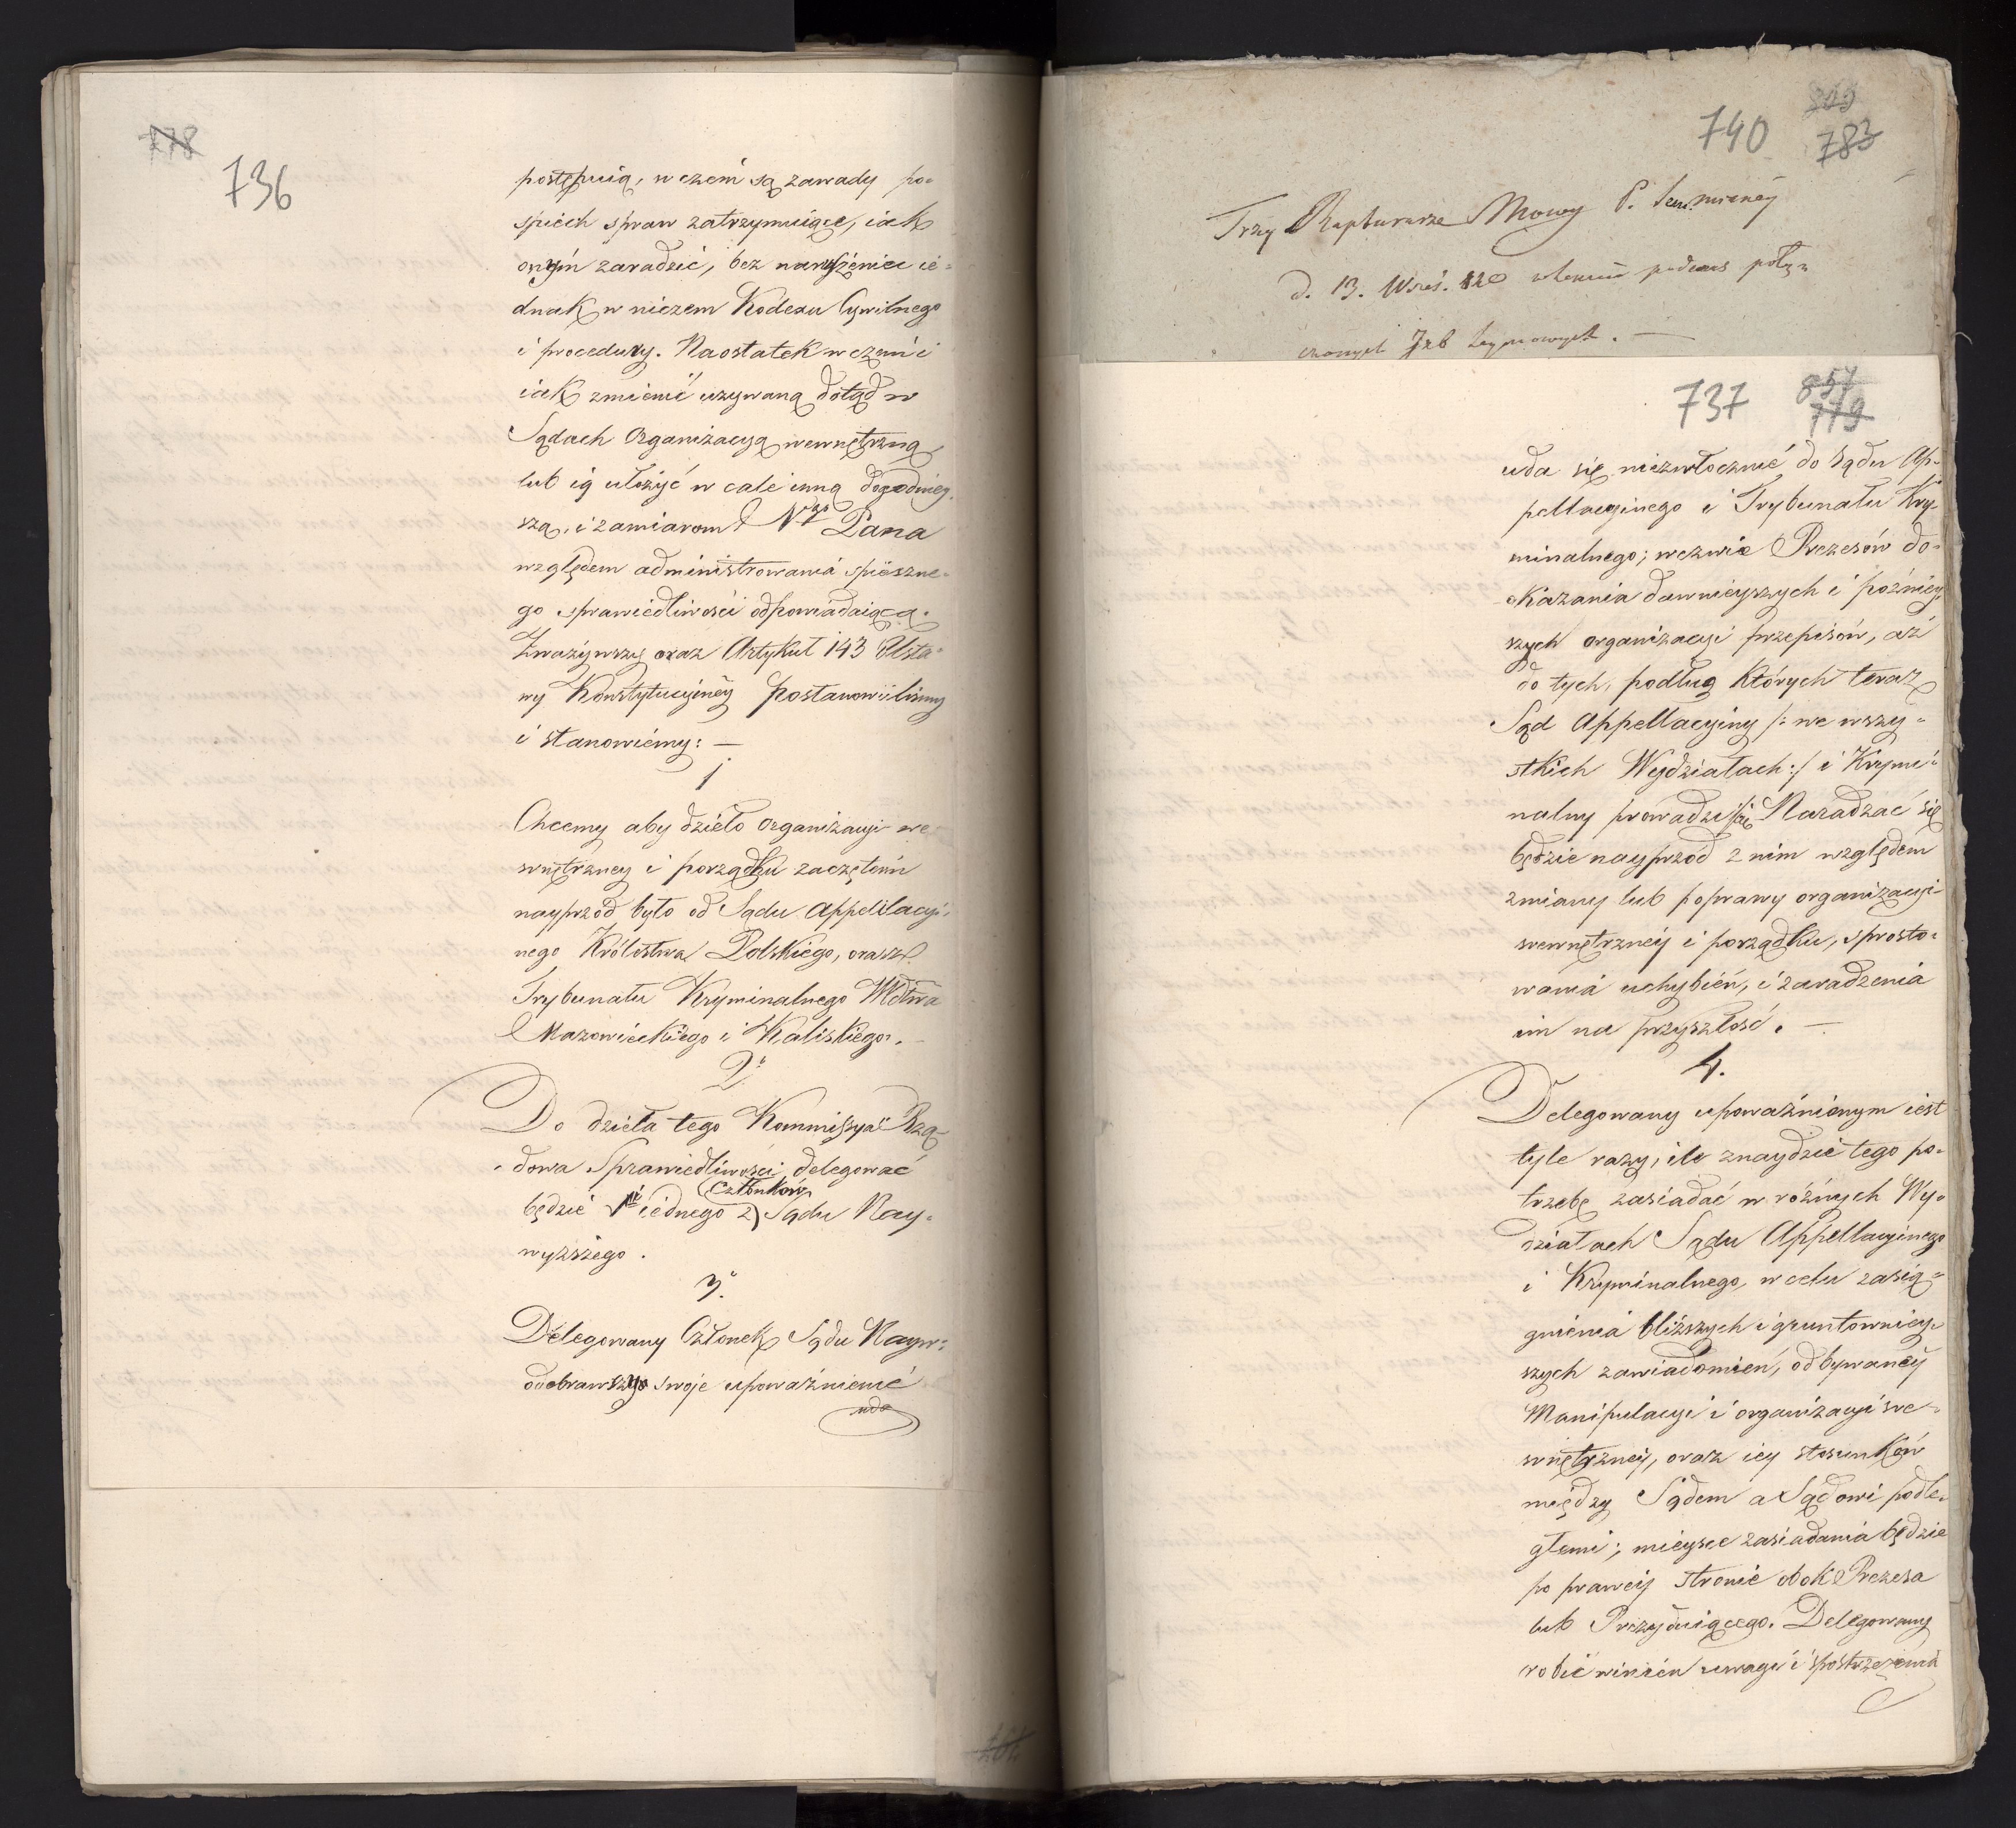 778
736
postępuią, w czem są zawady po=
spiech spraw zatrzymuiące, iak
onym zaradzić, bez naruszenia ie=
dnak w niczem Kodexu Cywilnego
i procedury. Naostatek w czem i
iak zmienić używaną dotąd w
Sądach Organizacyą wewnętrzną,
lub ią ułożyć w cale inną dogodniey=
szą, i zamiarom Nygo Pana
względem administrowania spieszne=
go sprawiedliwości odpowiadaiącą.
Zważywszy oraz Artykuł 143 Usta=
wy Konstytucyiney postanowiliśmy
i stanowiemy: —
1.
Chcemy aby dzieło Organizacyi we=
wnętrzney i porządku zaczętem
nayprzód było od Sądu Appellacyi=
nego Królestwa Polskiego, oraz
Trybunału Kryminalnego Wdztwa
Mazowieckiego i Kaliskiego.
2.
Do dzieła tego Kommissya Rzą=
dowa Sprawiedliwości delegować
będzie iednego z Członków Sądu Nay=
wyższego.
3.
Delegowany Członek Sądu Nayw:
odebrawszy swoje upoważnienie
uda
740
809
783
Trzy Rapturarze Mowy P.
d. 13. Wrześ. 820 podczas połą=
czonych Izb Seymowych. —
737
857
779
uda się niezwłocznie do Sądu Ap=
pellacyinego i Trybunału Kry=
minalnego; wezwie Prezesów do
okazania dawnieyszych i późniey=
szych organizacyi przepisów, aż
do tych, podług których teraz
Sąd Appellacyiny /: we wszy=
stkich Wydziałach :/ i Krymi=
nalny prowadzi się. Naradzać się
będzie nayprzód z nim względem
zmiany lub poprawy organizacyi
wewnętrzney i porządku, sprosto=
wania uchybień, i zaradzenia
im na przyszłość. —
4.
Delegowany upoważnionym iest
tyle razy, ile znaydzie tego po=
trzebę zasiadać w różnych Wy=
działach Sądu Appellacyinego
i Kryminalnego, w celu zasią=
gnienia bliższych i gruntowniey=
szych zawiadomień, odbywaney
Manipulacyi i organizacyi we=
wnętrzney, oraz iey stosunków
między Sądem a Sądowi podle=
głemi; mieysce zasiadania będzie
po prawey stronie obok Prezesa
lub Prezyduiącego. Delegowany
robić winien uwagi i spostrzeżenia